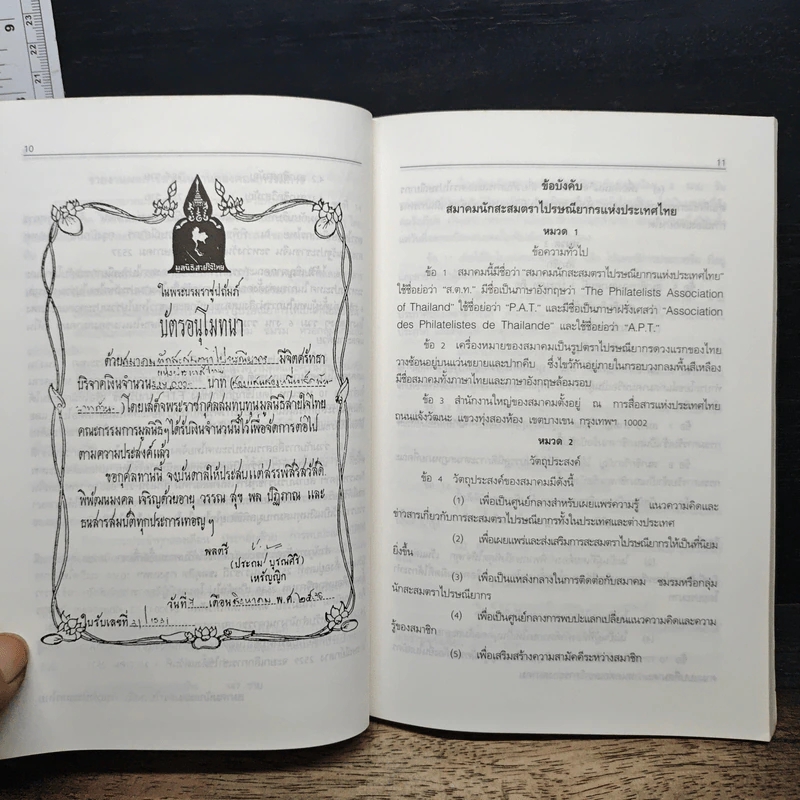 9
23
22
21
10
มูลนิธิสายใจไทย
ในพระบรมราชูปถัมภ์
บัตรอนุโมทนา
ด้วยสมาคมนักสะสมตราไปรษณียากร มีจิตศรัทธา
แห่งประเทศไทย
บริจาคเงินจำนวน บาท
โดยเสด็จพระราชกุศลสมทบทุนมูลนิธิสายใจไทย
คณะกรรมการมูลนิธิฯได้รับเงินจำนวนนี้ไว้เพื่อจัดการต่อไป
ตามความประสงค์แล้ว
ขอกุศลทานนี้ จงบันดาลให้ประสบแต่สรรพสิริสวัสดิ์
พิพัฒนมงคล เจริญด้วยอายุ วรรณ สุข พล ปฏิภาณ และ
ธนสารสมบัติทุกประการเทอญฯ
พลตรี
(ประถม บุรณศิริ)
เหรัญญิก
วันที่ เดือน พ.ศ.
ใบรับเลขที่
11
ข้อบังคับ
สมาคมนักสะสมตราไปรษณียากรแห่งประเทศไทย
หมวด 1
ข้อความทั่วไป
ข้อ 1 สมาคมนี้มีชื่อว่า "สมาคมนักสะสมตราไปรษณียากรแห่งประเทศไทย"
ใช้ชื่อย่อว่า "ส.ต.ท." มีชื่อเป็นภาษาอังกฤษว่า "The Philatelists Association
of Thailand" ใช้ชื่อย่อว่า "P.A.T." และมีชื่อเป็นภาษาฝรั่งเศสว่า "Association
des Philatelistes de Thailande" และใช้ชื่อย่อว่า "A.P.T."
ข้อ 2 เครื่องหมายของสมาคมเป็นรูปตราไปรษณียากรดวงแรกของไทย
วางซ้อนอยู่บนแว่นขยายและปากคีบ ซึ่งไขว้กันอยู่ภายในกรอบวงกลมพื้นสีเหลือง
มีชื่อสมาคมทั้งภาษาไทยและภาษาอังกฤษล้อมรอบ
ข้อ 3 สำนักงานใหญ่ของสมาคมตั้งอยู่ ณ การสื่อสารแห่งประเทศไทย
ถนนแจ้งวัฒนะ แขวงทุ่งสองห้อง เขตบางเขน กรุงเทพฯ 10002
หมวด 2
วัตถุประสงค์
ข้อ 4 วัตถุประสงค์ของสมาคมมีดังนี้
(1) เพื่อเป็นศูนย์กลางสำหรับเผยแพร่ความรู้ แนวความคิดและ
ข่าวสารเกี่ยวกับการสะสมตราไปรษณียากรทั้งในประเทศและต่างประเทศ
(2) เพื่อเผยแพร่และส่งเสริมการสะสมตราไปรษณียากรให้เป็นที่นิยม
ยิ่งขึ้น
(3) เพื่อเป็นแหล่งกลางในการติดต่อกับสมาคม ชมรมหรือกลุ่ม
นักสะสมตราไปรษณียากร
(4) เพื่อเป็นศูนย์กลางการพบปะแลกเปลี่ยนแนวความคิดและความ
รู้ของสมาชิก
(5) เพื่อเสริมสร้างความสามัคคีระหว่างสมาชิก